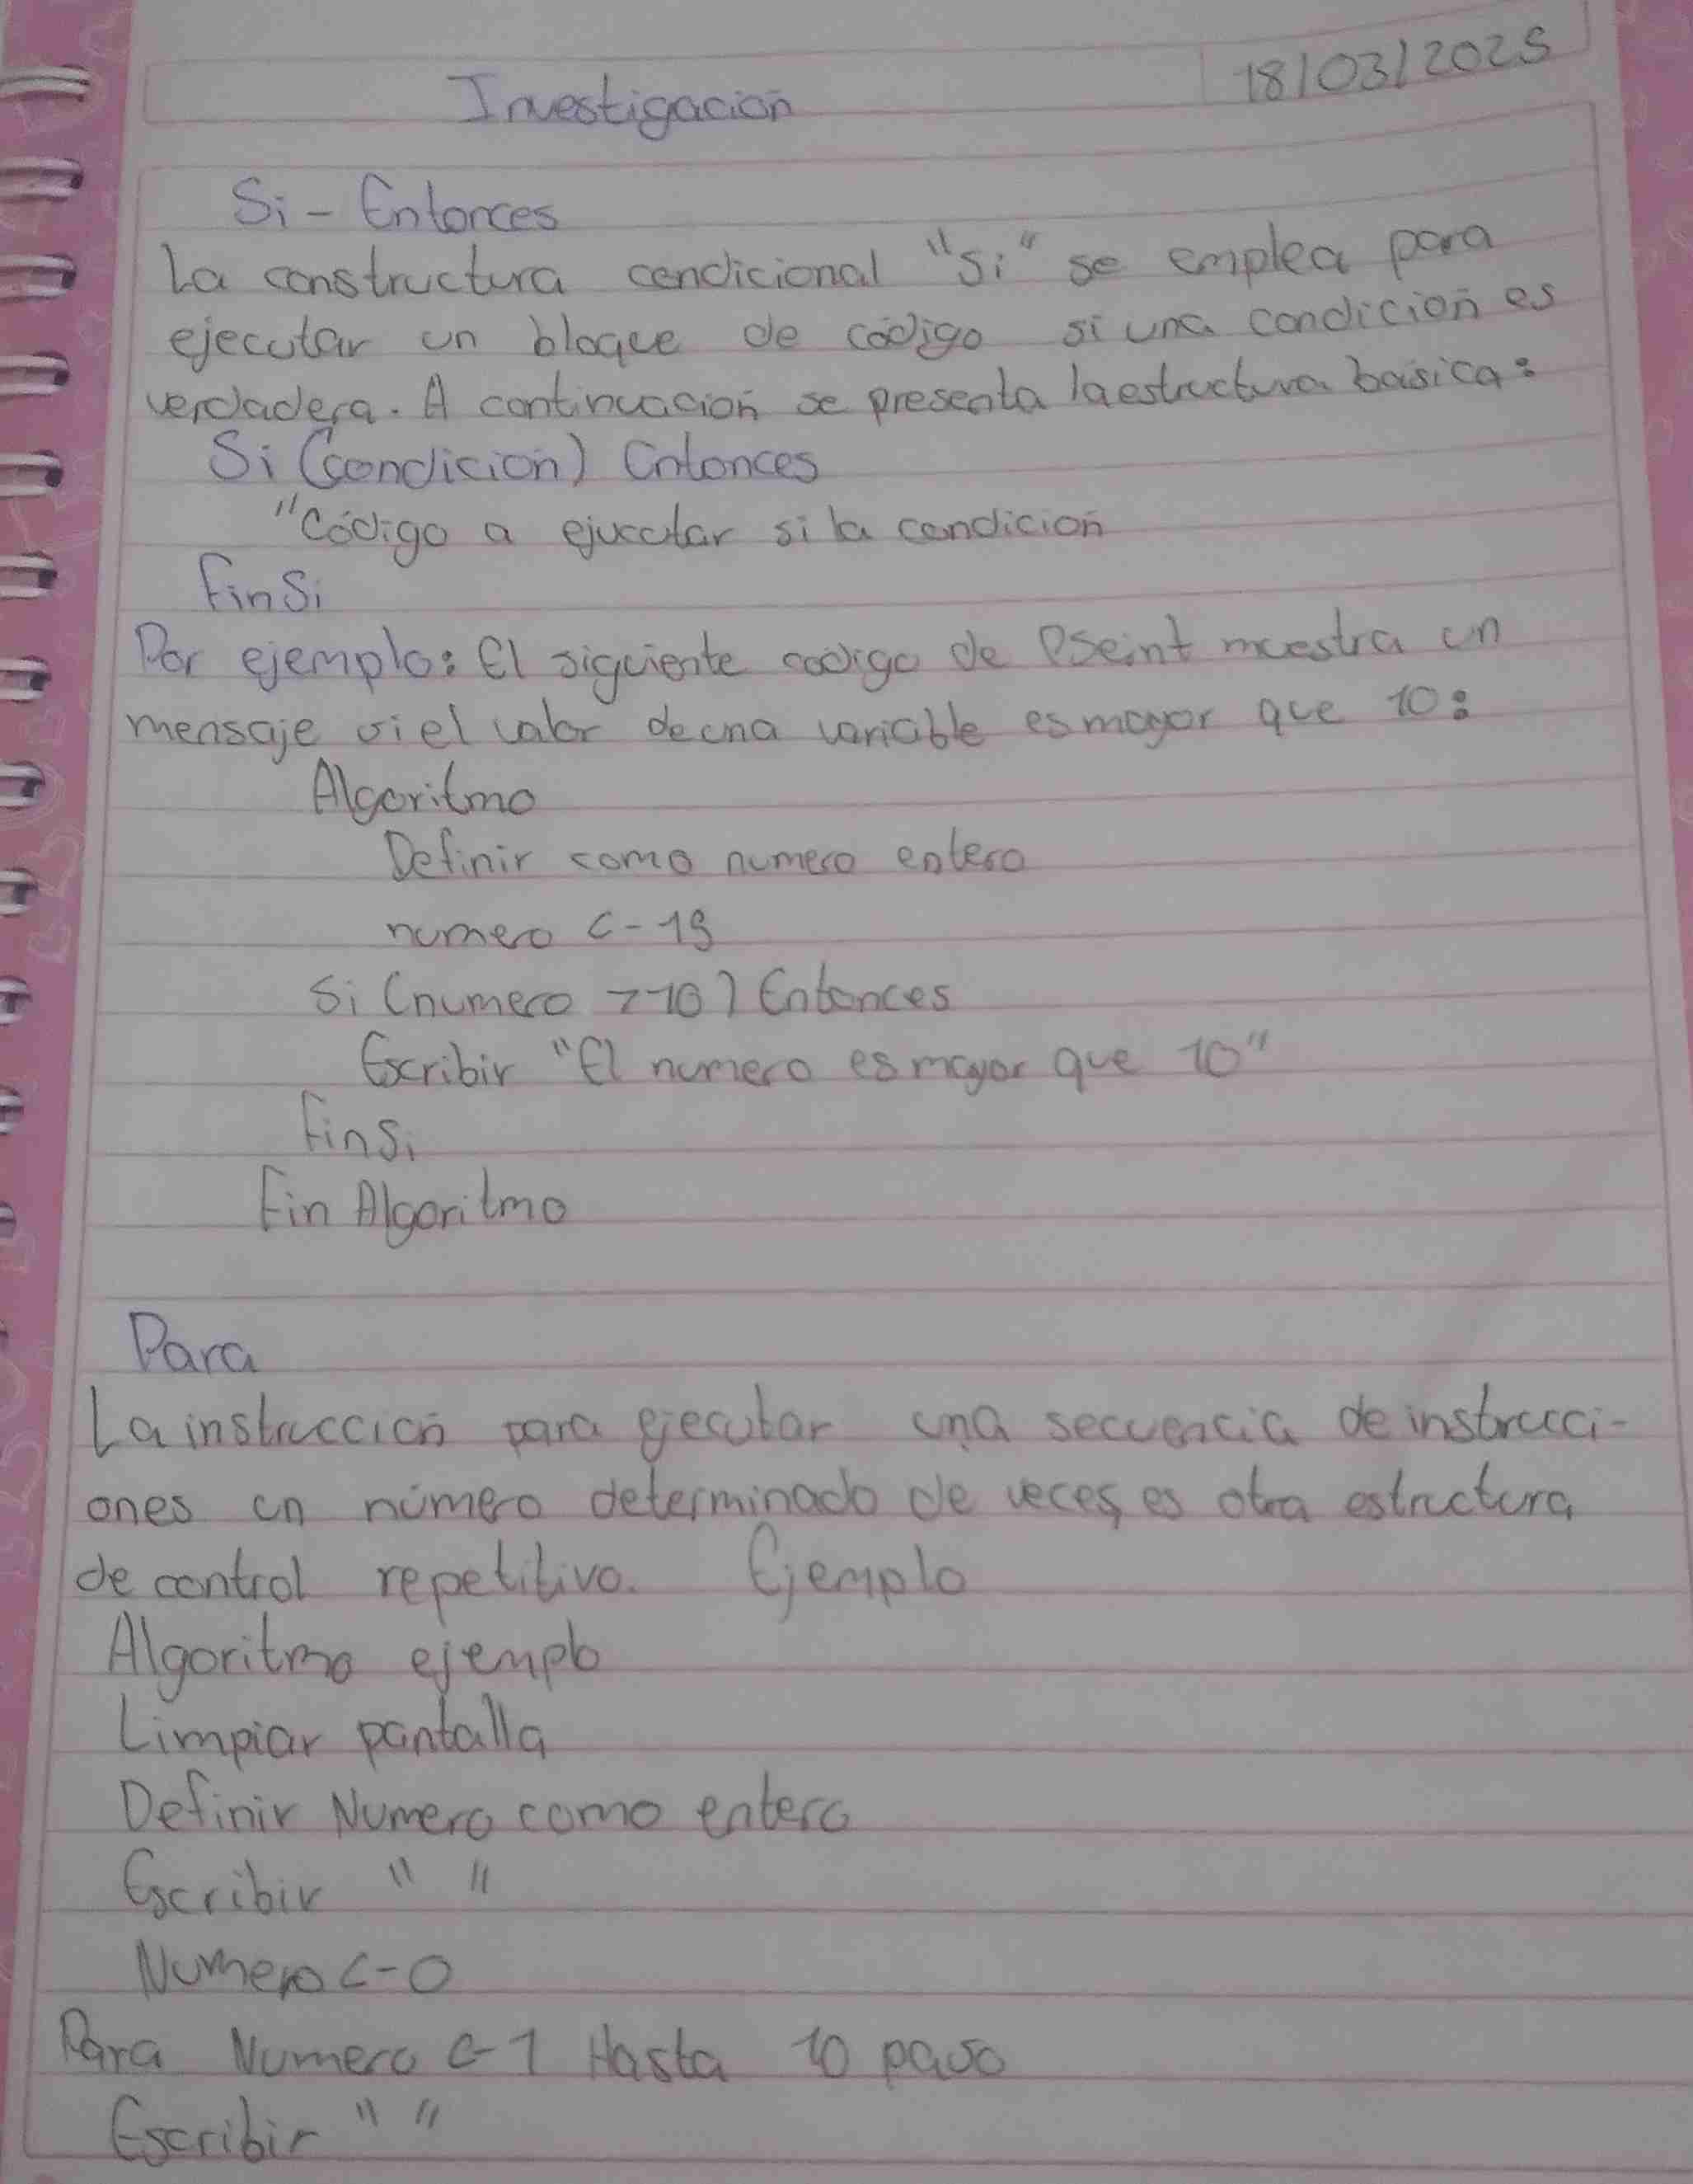 Investigación
18/03/2025
Si - Entonces
La constructura condicional "Si" se emplea para
ejecutar un bloque de código si una condición es
verdadera. A continuación se presenta la estructura básica:
Si (condición) Entonces
"Código a ejucutar si la condición
FinSi
Por ejemplo: El siguiente código de PSeint muestra un
mensaje si el valor de una variable es mayor que 10:
Algoritmo
Definir como numero entero
numero <-15
Si (numero >10) Entonces
Escribir "El numero es mayor que 10"
FinSi
Fin Algoritmo
Para
La instrucción para ejecutar una secuencia de instrucci-
ones un número determinado de veces, es otra estructura
de control repetitivo. Ejemplo
Algoritmo ejemplo
Limpiar pantalla
Definir Numero como entero
Escribir " "
Numero <-0
Para Numero <-1 Hasta 10 paso
Escribir " "